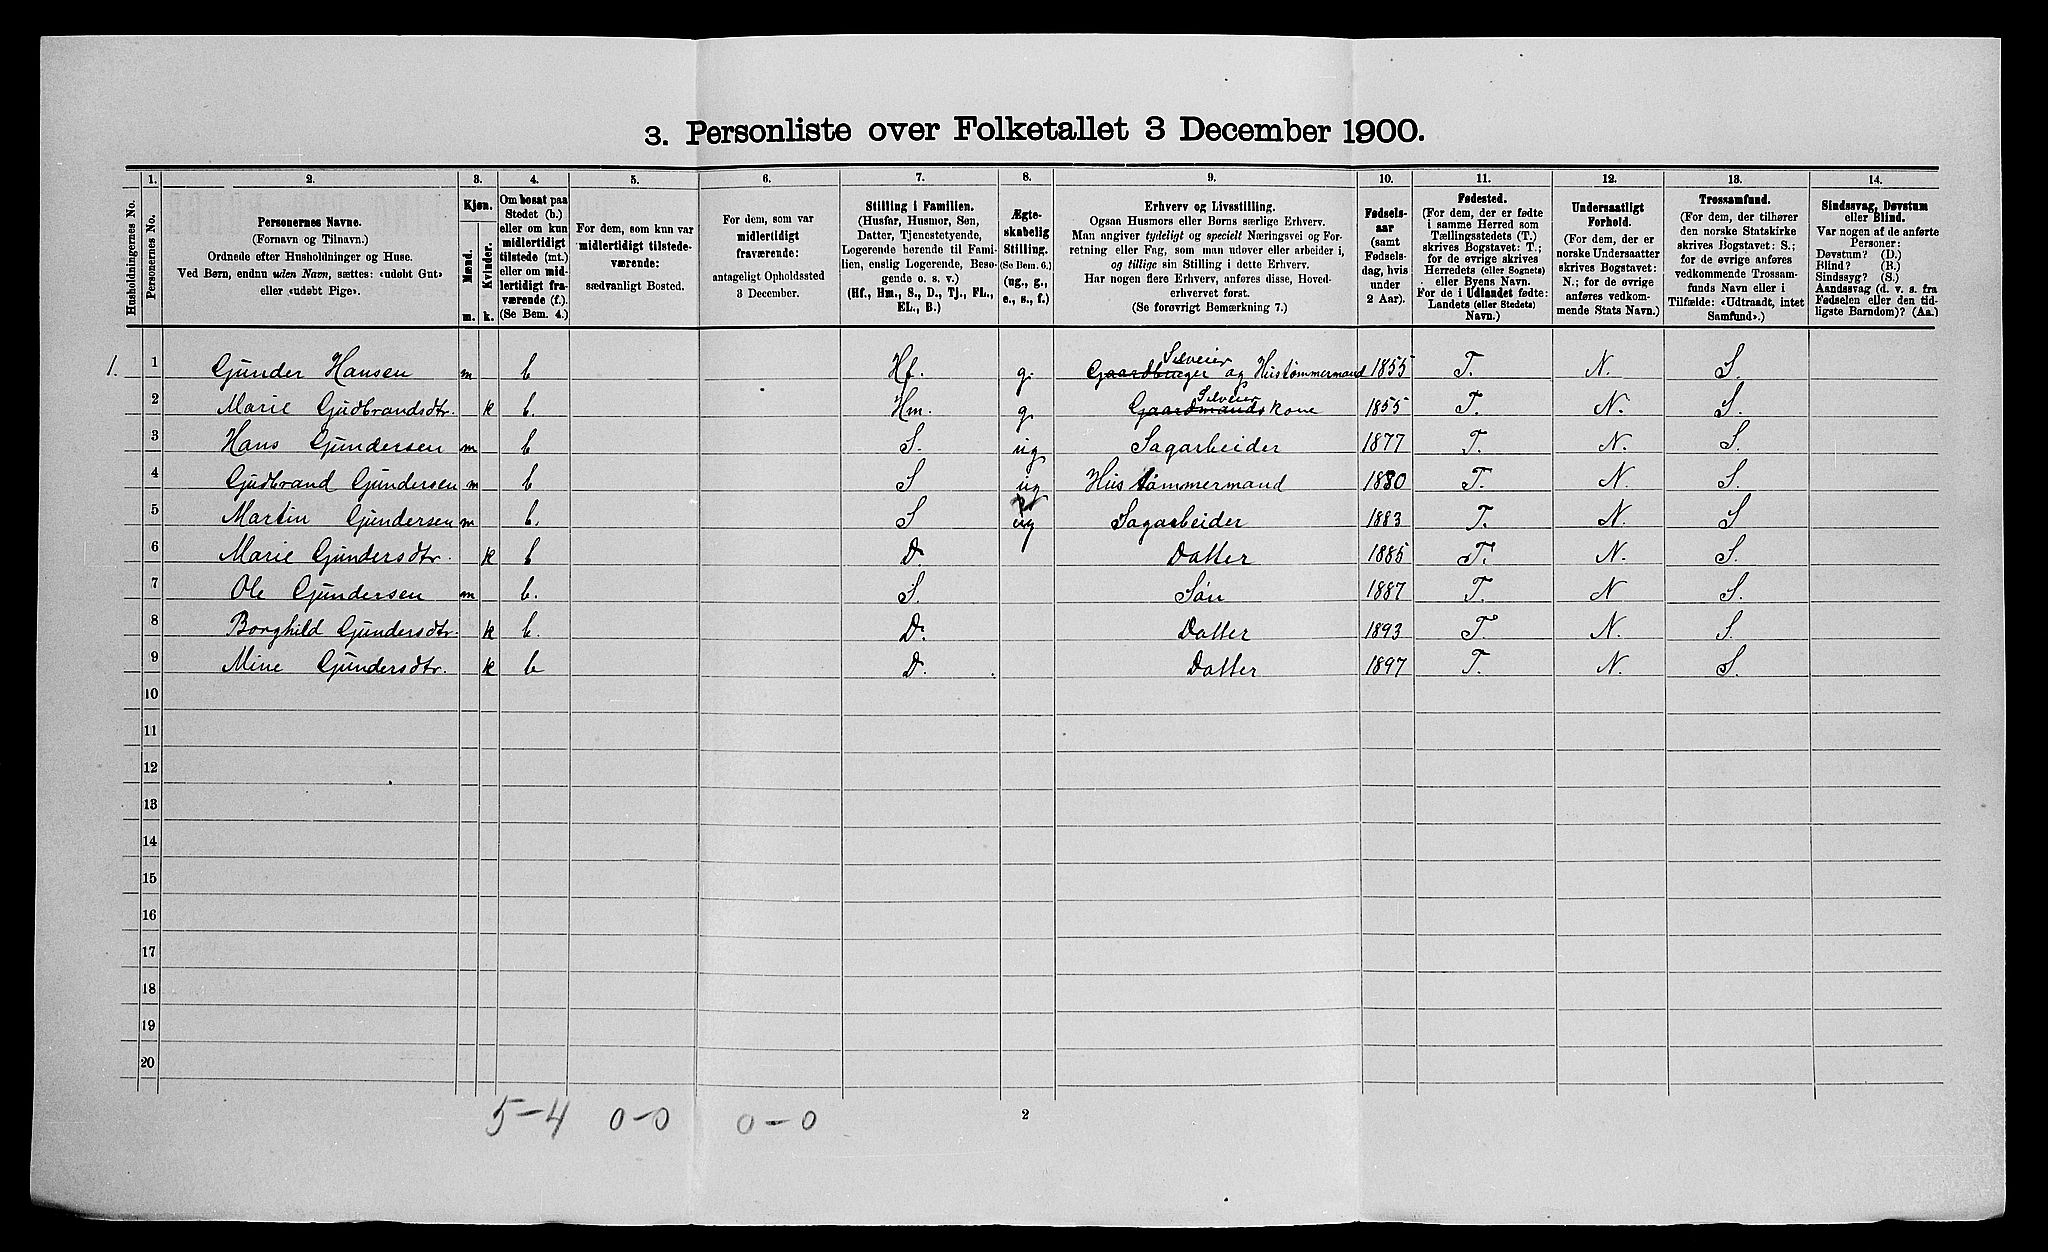 3. Personliste over Folketallet 3 December 1900.
Husholdningernes No.
1. Personernes No.
2. Personernes Navne.
(Fornavn og Tilnavn.)
Ordnede efter Husholdninger og Huse.
Ved Børn, endnu uden Navn, sættes: «udøbt Gut»
eller «udøbt Pige».
3. Kjøn.
Mænd. m.
Kvinder. k.
4. Om bosat paa
Stedet (b.)
eller om kun
midlertidigt
tilstede (mt.)
eller om mid-
lertidigt fra-
værende (f.).
(Se Bem. 4.)
5. For dem, som kun var
midlertidigt tilstede-
værende:
sædvanligt Bosted.
6. For dem, som var
midlertidigt
fraværende:
antageligt Opholdssted
3 December.
7. Stilling i Familien.
(Husfar, Husmor, Søn,
Datter, Tjenestetyende,
Logerende hørende til Fami-
lien, enslig Logerende, Besø-
gende o. s. v.)
(Hf., Hm., S., D., Tj., FL.,
EL., B.)
8. Ægte-
skabelig
Stilling.
(Se Bem. 6.)
(ug., g.,
e., s., f.)
9. Erhverv og Livsstilling.
Ogsaa Husmors eller Børns særlige Erhverv.
Man angiver tydeligt og specielt Næringsvei og For-
retning eller Fag, som man udøver eller arbeider i,
og tillige sin Stilling i dette Erhverv.
Har nogen flere Erhverv, anføres disse, Hoved-
erhvervet først.
(Se forøvrigt Bemærkning 7.)
10. Fødsels-
aar
(samt
Fødsels-
dag, hvis
under
2 Aar).
11. Fødested.
(For dem, der er fødte
i samme Herred som
Tællingsstedets (T.)
skrives Bogstavet: T.;
for de øvrige skrives
Herredets (eller Sognets)
eller Byens Navn.
For de i Udlandet fødte:
Landets (eller Stedets)
Navn.)
12. Undersaatligt
Forhold.
(For dem, der er
norske Undersaatter
skrives Bogstavet:
N.; for de øvrige
anføres vedkom-
mende Stats Navn.)
13. Trossamfund.
(For dem, der tilhører
den norske Statskirke
skrives Bogstavet: S.;
for de øvrige anføres
vedkommende Trossam-
funds Navn eller i
Tilfælde: «Udtraadt, intet
Samfund».)
14. Sindssvag, Døvstum
eller Blind.
Var nogen af de anførte
Personer:
Døvstum? (D.)
Blind? (B.)
Sindssyg? (S.)
Aandssvag (d. v. s. fra
Fødselen eller den tid-
ligste Barndom)? (Aa.)
1. 1 Gunder Hansen m b Hf. g. Gaardbruger Selveier og Hustømmermand 1855 T. N. S.
2 Marie Gudbrandsdtr. k b. Hm. g. Gaardmands Selveier kone 1855 T. N. S.
3 Hans Gundersen m b S. ug Sagarbeider 1877 T. N. S.
4 Gudbrand Gundersen m b S ug Hustømmermand 1880 T. N. S
5 Martin Gundersen m b. S ug Sagarbeider 1883 T. N. S
6 Marie Gundersdtr. k b D. Datter 1885 T. N. S.
7 Ole Gundersen m b. S. Søn 1887 T. N S.
8 Borghild Gundersdtr. k b. D. Datter 1893 T. N. S.
9 Mine Gundersdtr. k b D. Datter 1897 T. N S.
10
11
12
13
14
15
16
17
18
19
20
5-4 0-0 0-0
2